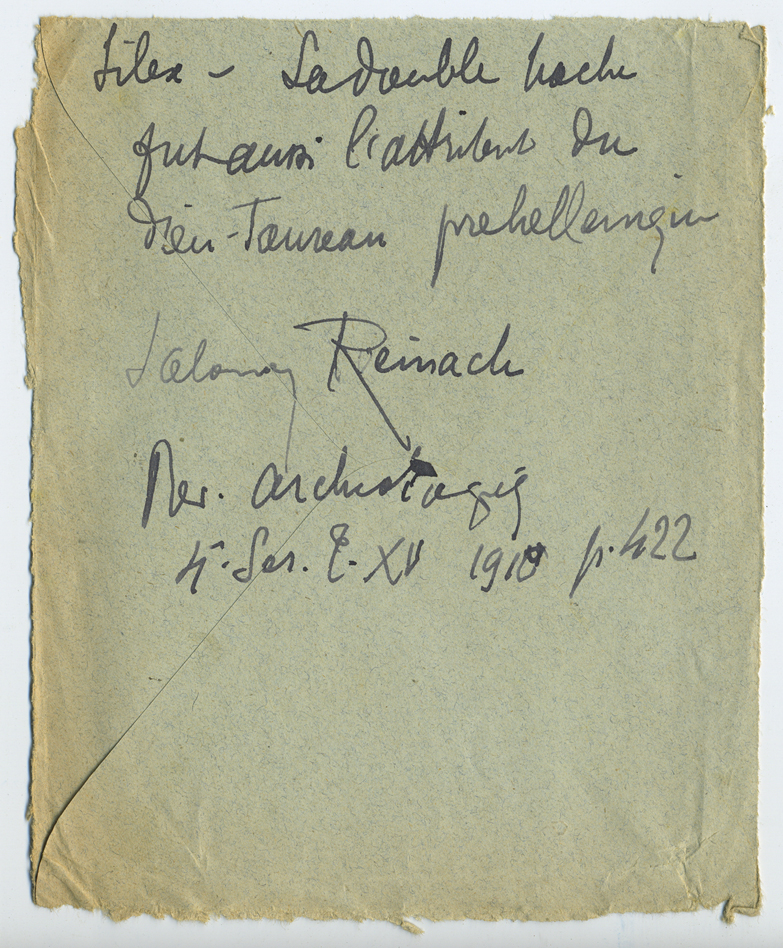 Silex – La double hache
fut aussi l'attribut du
Dieu-Taureau prehellenique
Salomon Reinach
Rev. archeologiq
4e Ser. T. XV 1910 p. 422